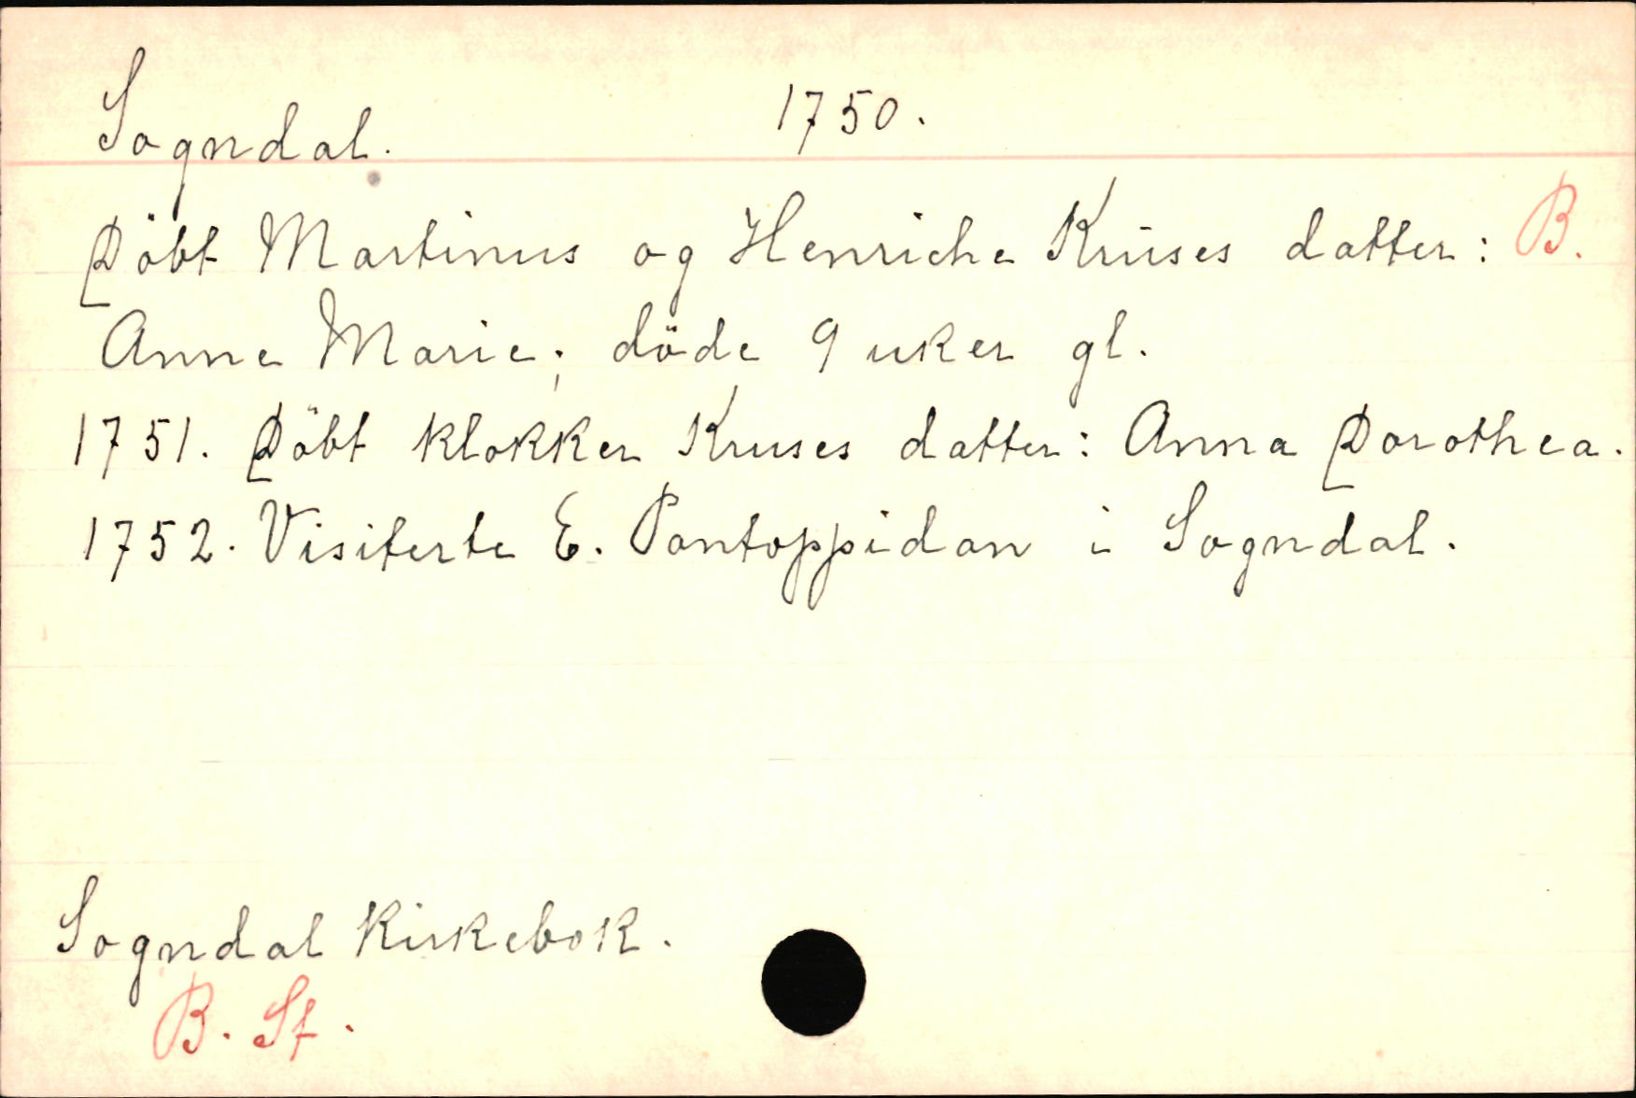 Sogndal. 1750.
Döbt Martinus og Henriche Krüses datter: B.
Anne Marie; döde 9 uker gl.
1751. Döbt klokker Kruses datter: Anna Dorothea.
1752. Visiterte E. Pontoppidan i Sogndal.
Sogndal Kirkebok.
B. Sf.